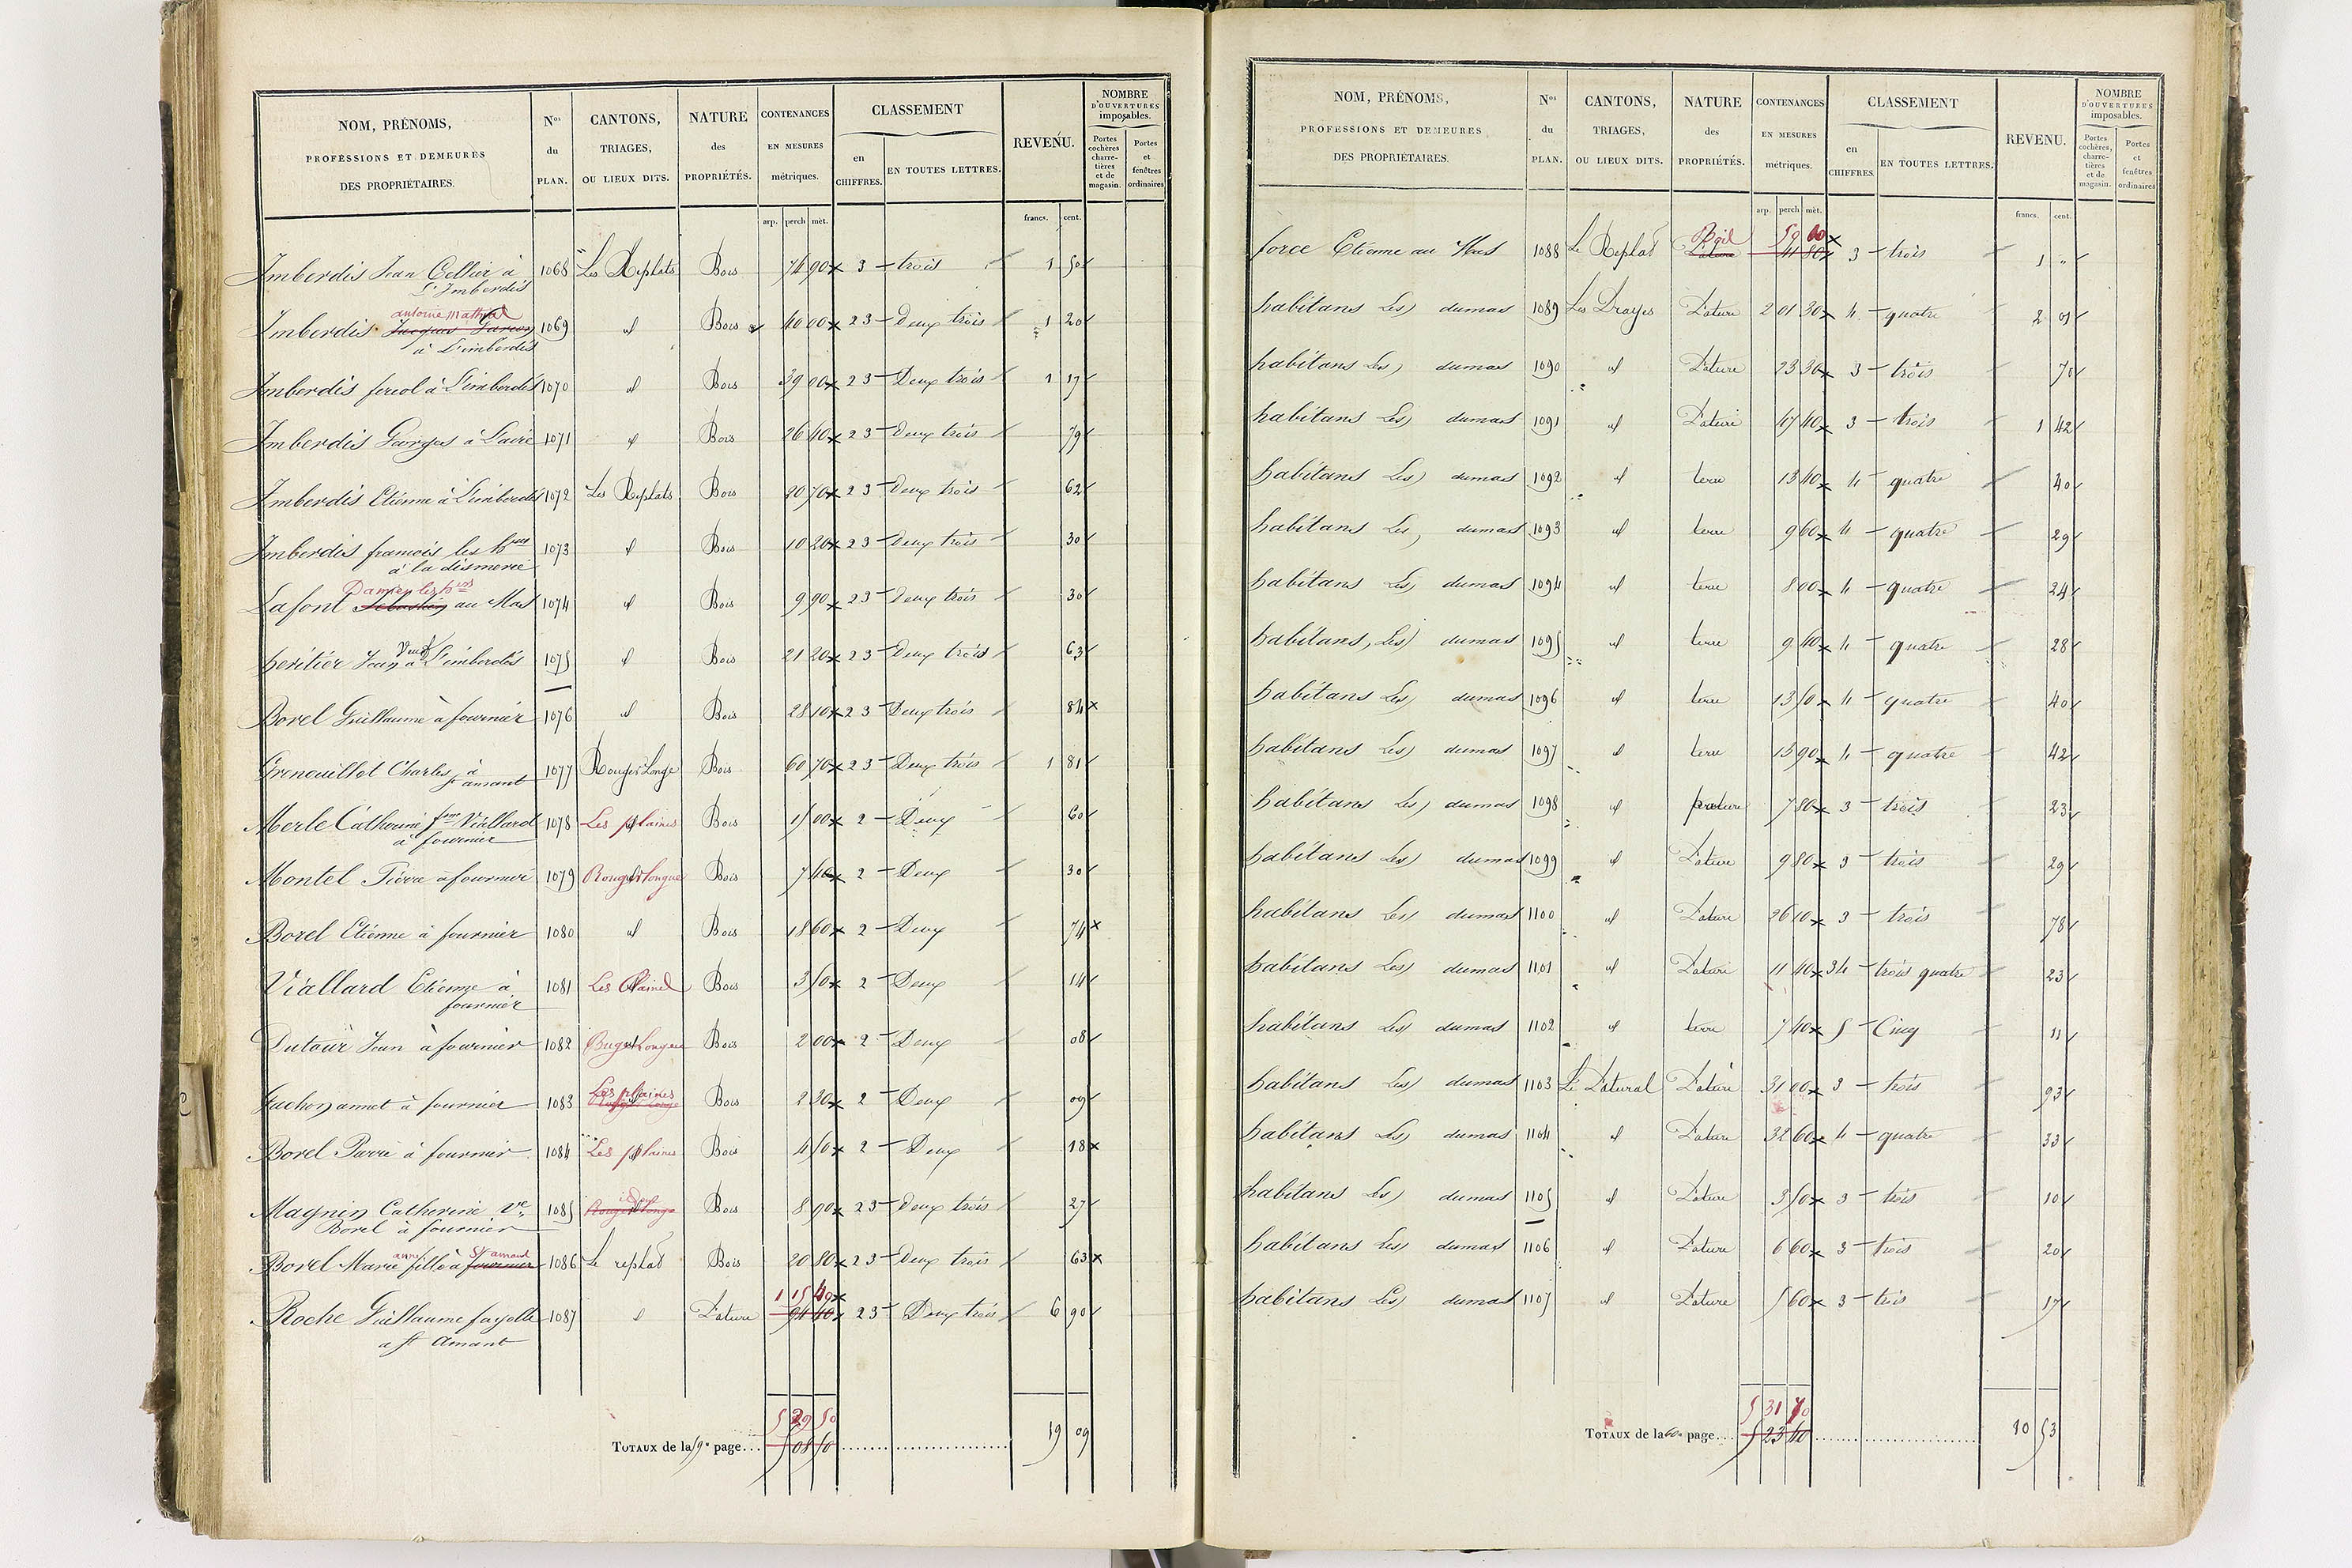 NOM, PRÉNOMS, PROFESSIONS ET DEMEURES DES PROPRIÉTAIRES. | Nos du PLAN. | CANTONS, TRIAGES, OU LIEUX DITS. | NATURE des PROPRIÉTÉS. | CONTENANCES EN MESURES métriques. | CLASSEMENT en CHIFFRES. | EN TOUTES LETTRES. | REVENU. | NOMBRE D'OUVERTURES imposables. Portes cochères, charretières et de magasin. | Portes et fenêtres ordinaires
arp. perch mèt. francs. cent.
Imberdis Jean Cellier à 1068 Les Replats Bois 74 90 3 trois 1 50
L'Imberdis
antoine mathieu
Imberdis Jacques 1069 id Bois 40 00 2 3 Deux trois 1 20
à L'imberdis
Imberdis fereol à L'imberdis 1070 id Bois 39 00 2 3 Deux trois 1 17
Imberdis Georges à 1071 id Bois 26 40 2 3 Deux trois 79
Imberdis Etienne à L'imberdis 1072 Les Replats Bois 20 70 2 3 Deux trois 62
Imberdis francois les hers 1073 id Bois 10 20 2 3 Deux trois 30
à la dismerie
Damien les hers
Lafont Sebastien au Mas 1074 id Bois 9 90 2 3 Deux trois 30
Veuf
heritier Jean à L'imberdis 1075 id Bois 21 20 2 3 Deux trois 63
Borel Guillaume à fournier 1076 id Bois 28 10 2 3 Deux trois 84
Grenouillot Charles à 1077 Rouger Longe Bois 60 70 2 3 Deux trois 1 81
st amant
Merle Catherine fme Viallard 1078 Les plaines Bois 15 00 2 Deux 60
à fournier
Montel Pierre à fournier 1079 Rouger longue Bois 7 40 2 Deux 30
Borel Etienne à fournier 1080 id Bois 18 60 2 Deux 74
Viallard Etienne à 1081 Les Plaines Bois 3 50 2 Deux 14
fournier
Dutour Jean à fournier 1082 Bois 2 00 2 Deux 08
Gachon annet à fournier 1083 Les plaines Bois 2 20 2 Deux 09
Borel Pierre à fournier 1084 Les plaines Bois 4 50 2 Deux 18
Magnin Catherine ve 1085 Rouger Longe Bois 8 90 2 3 Deux trois 27
Borel à fournier
anne St amant
Borel Marie fille à fournier 1086 Le replat Bois 20 80 2 3 Deux trois 63
1 15 40
Roche Guillaume fayolle 1087 id Pature 94 40 2 3 Deux trois 6 90
a st Amant
5 29 50
TOTAUX de la 59e page... 5 08 50 19 09
NOM, PRÉNOMS, PROFESSIONS ET DEMEURES DES PROPRIÉTAIRES. | Nos du PLAN. | CANTONS, TRIAGES, OU LIEUX DITS. | NATURE des PROPRIÉTÉS. | CONTENANCES EN MESURES métriques. | CLASSEMENT en CHIFFRES | EN TOUTES LETTRES. | REVENU. | NOMBRE D'OUVERTURES imposables. Portes cochères, charretières et de magasin. | Portes et fenêtres ordinaires
arp. perch mèt. francs. cent.
50 00
force Etienne au Mas 1088 Le Replat Pature 41 80 3 trois 1 "
habitans Les dumas 1089 Les Drayes Pature 2 01 30 4 quatre 2 01
habitans Les dumas 1090 id Pature 23 30 3 trois 70
habitans Les dumas 1091 id Pature 47 40 3 trois 1 42
habitans Les dumas 1092 id terre 13 40 4 quatre 40
habitans Les dumas 1093 id terre 9 60 4 quatre 29
habitans Les dumas 1094 id terre 8 00 4 quatre 24
habitans Les dumas 1095 id terre 9 40 4 quatre 28
habitans Les dumas 1096 id terre 13 50 4 quatre 40
habitans Les dumas 1097 id terre 13 90 4 quatre 42
habitans Les dumas 1098 id pature 7 80 3 trois 23
habitans Les dumas 1099 id Pature 9 80 3 trois 29
habitans Les dumas 1100 id Pature 26 10 3 trois 78
habitans Les dumas 1101 id Pature 11 40 3 4 trois quatre 23
habitans Les dumas 1102 id terre 7 40 5 Cinq 11
habitans Les dumas 1103 Le Patural Pature 31 00 3 trois 93
habitans Les dumas 1104 id Pature 32 60 4 quatre 33
habitans Les dumas 1105 id Pature 3 50 3 trois 10
habitans Les dumas 1106 id Pature 6 60 3 trois 20
habitans Les dumas 1107 id Pature 5 60 3 trois 17
5 31 70
TOTAUX de la 60e page... 5 23 40 10 53